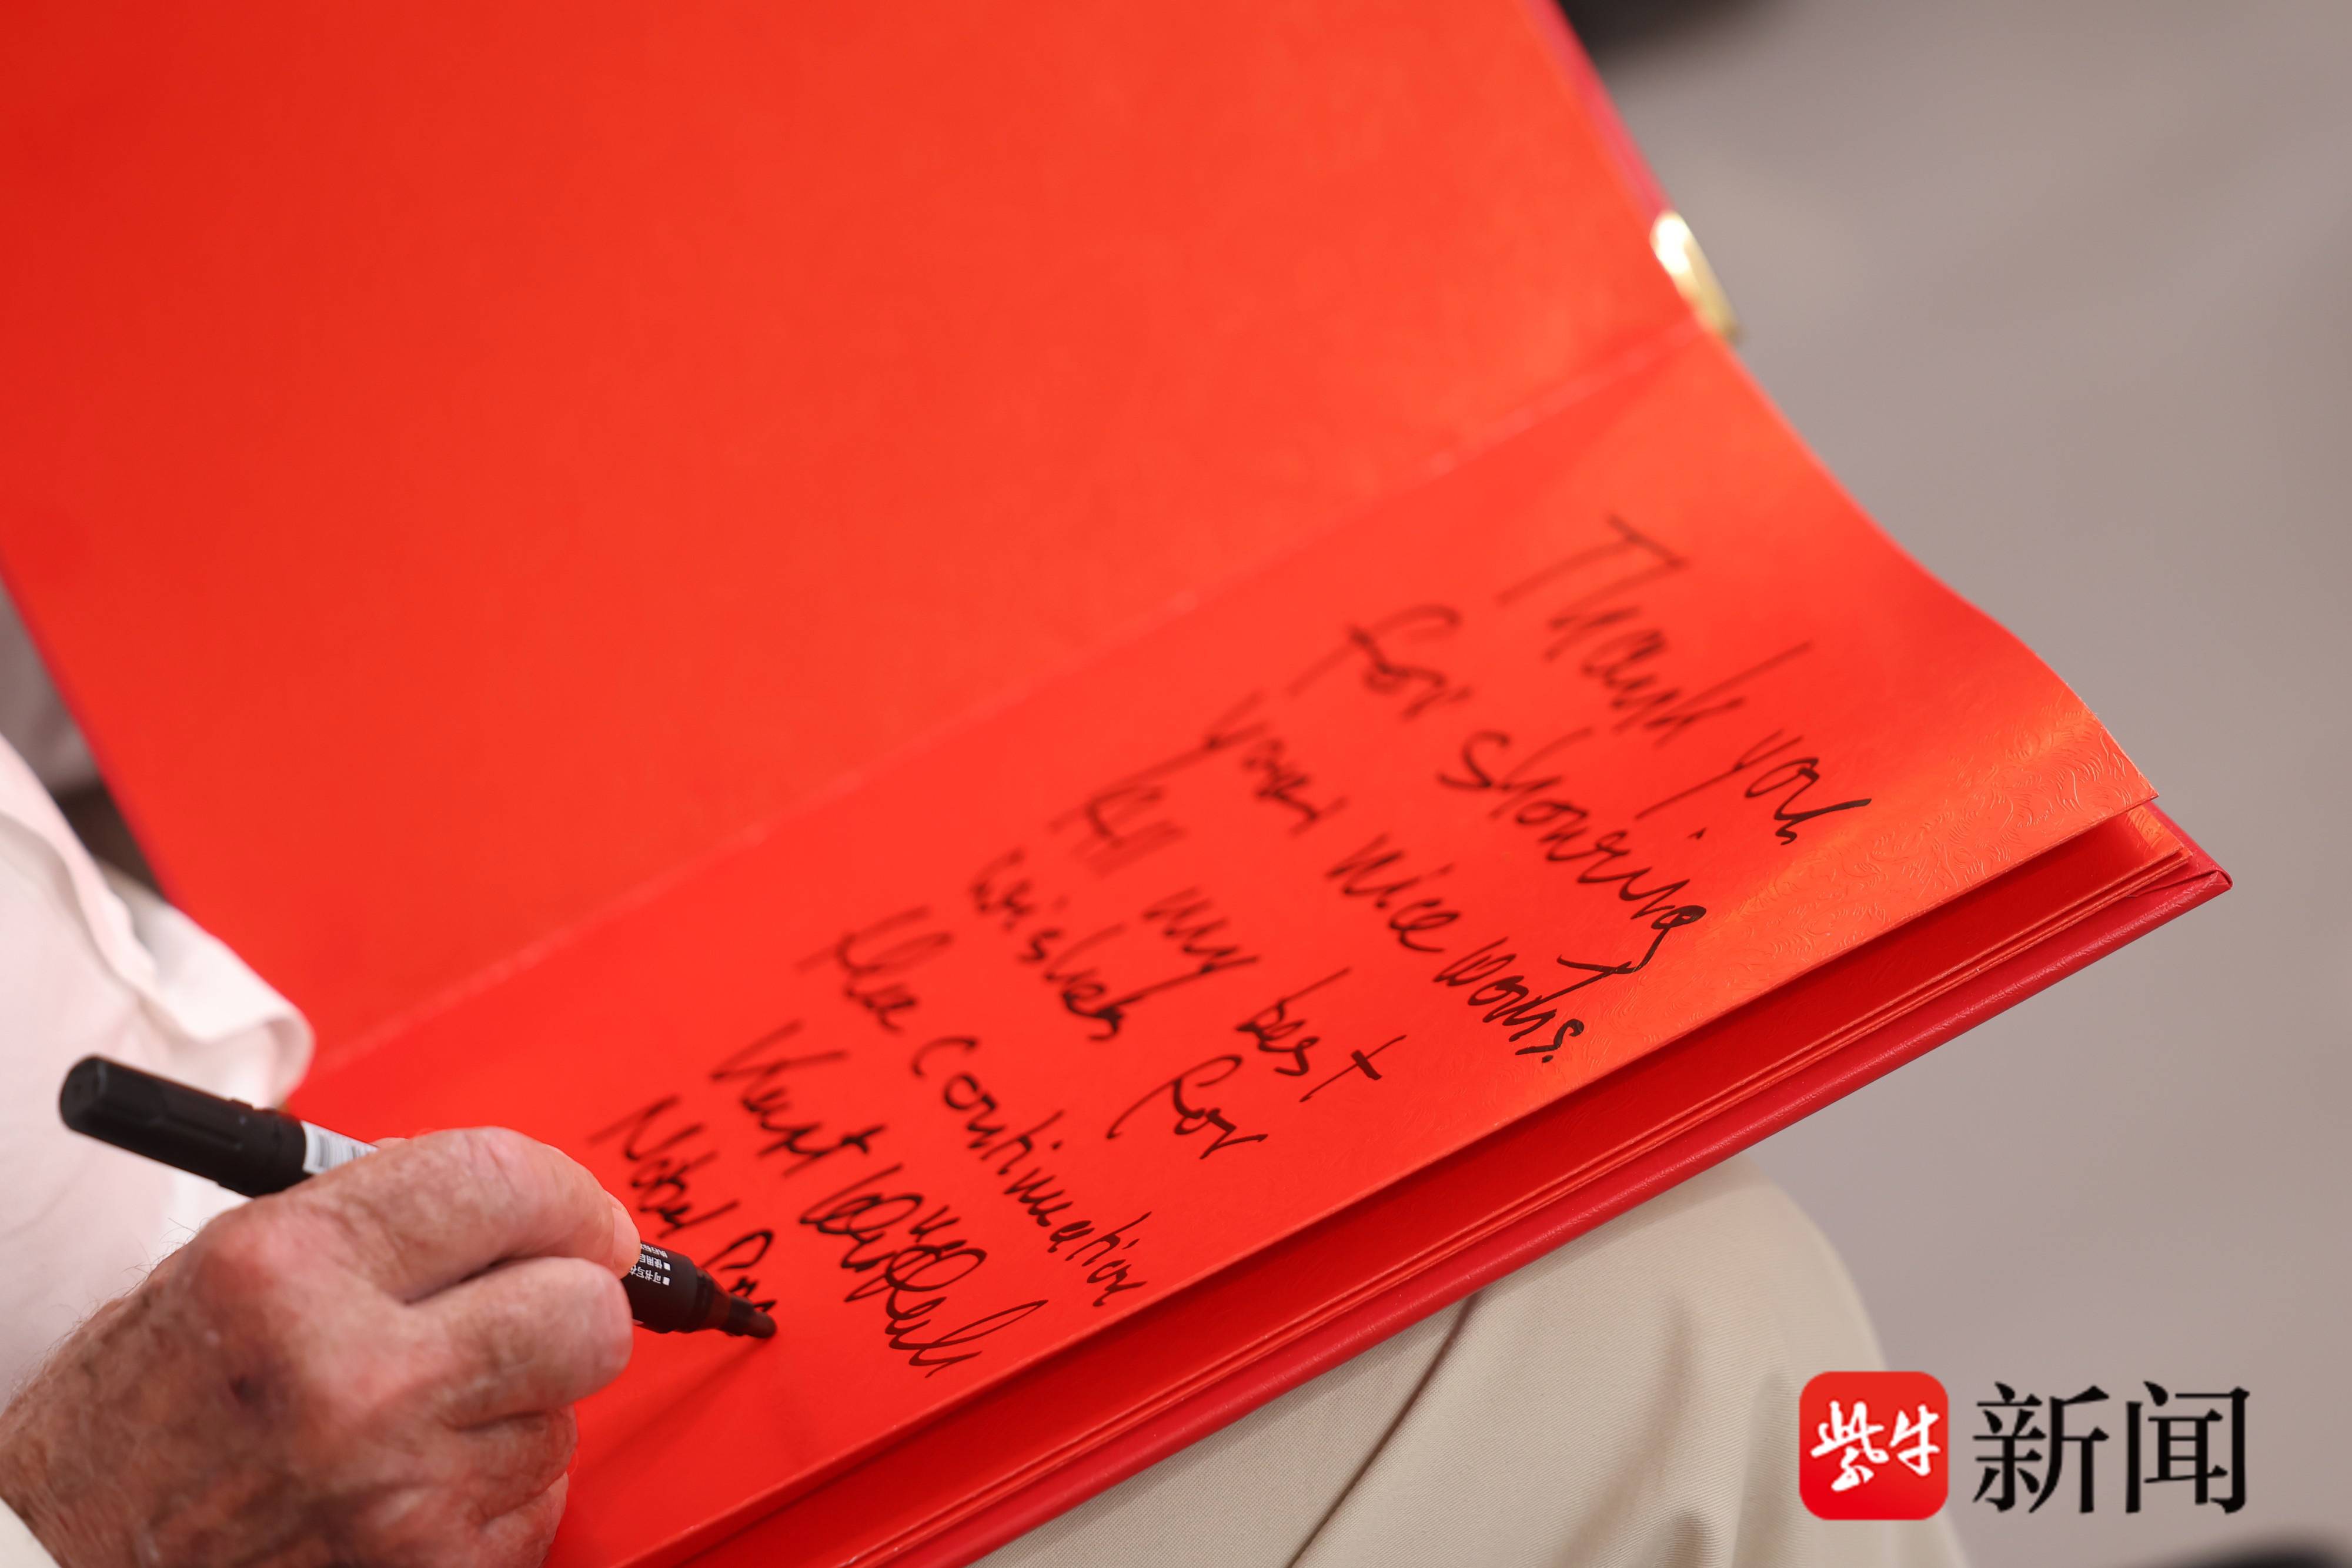 Thank you
for sharing
your nice works.
All my best
wishes for
the continuation
Kurt Wüthrich
Nobel
紫牛
新闻